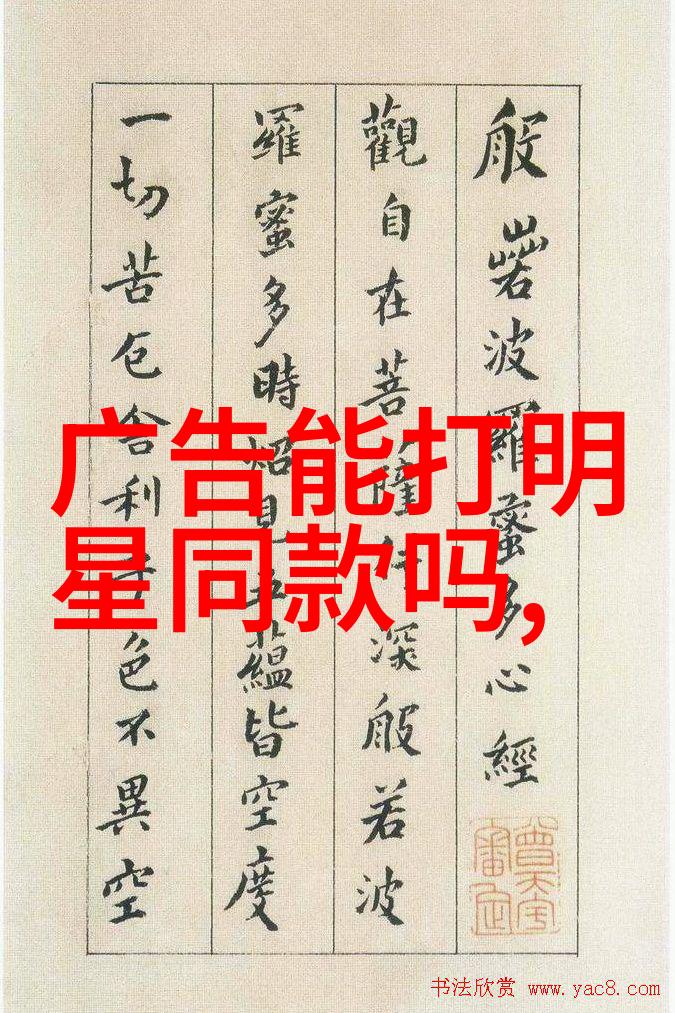 般若波羅蜜多心經
觀自在菩薩行深般若波
羅蜜多時炤見五蘊皆空度
一切苦厄舍利子色不異空
广告能打明
星同款吗,
书法欣赏 www.yac8.com